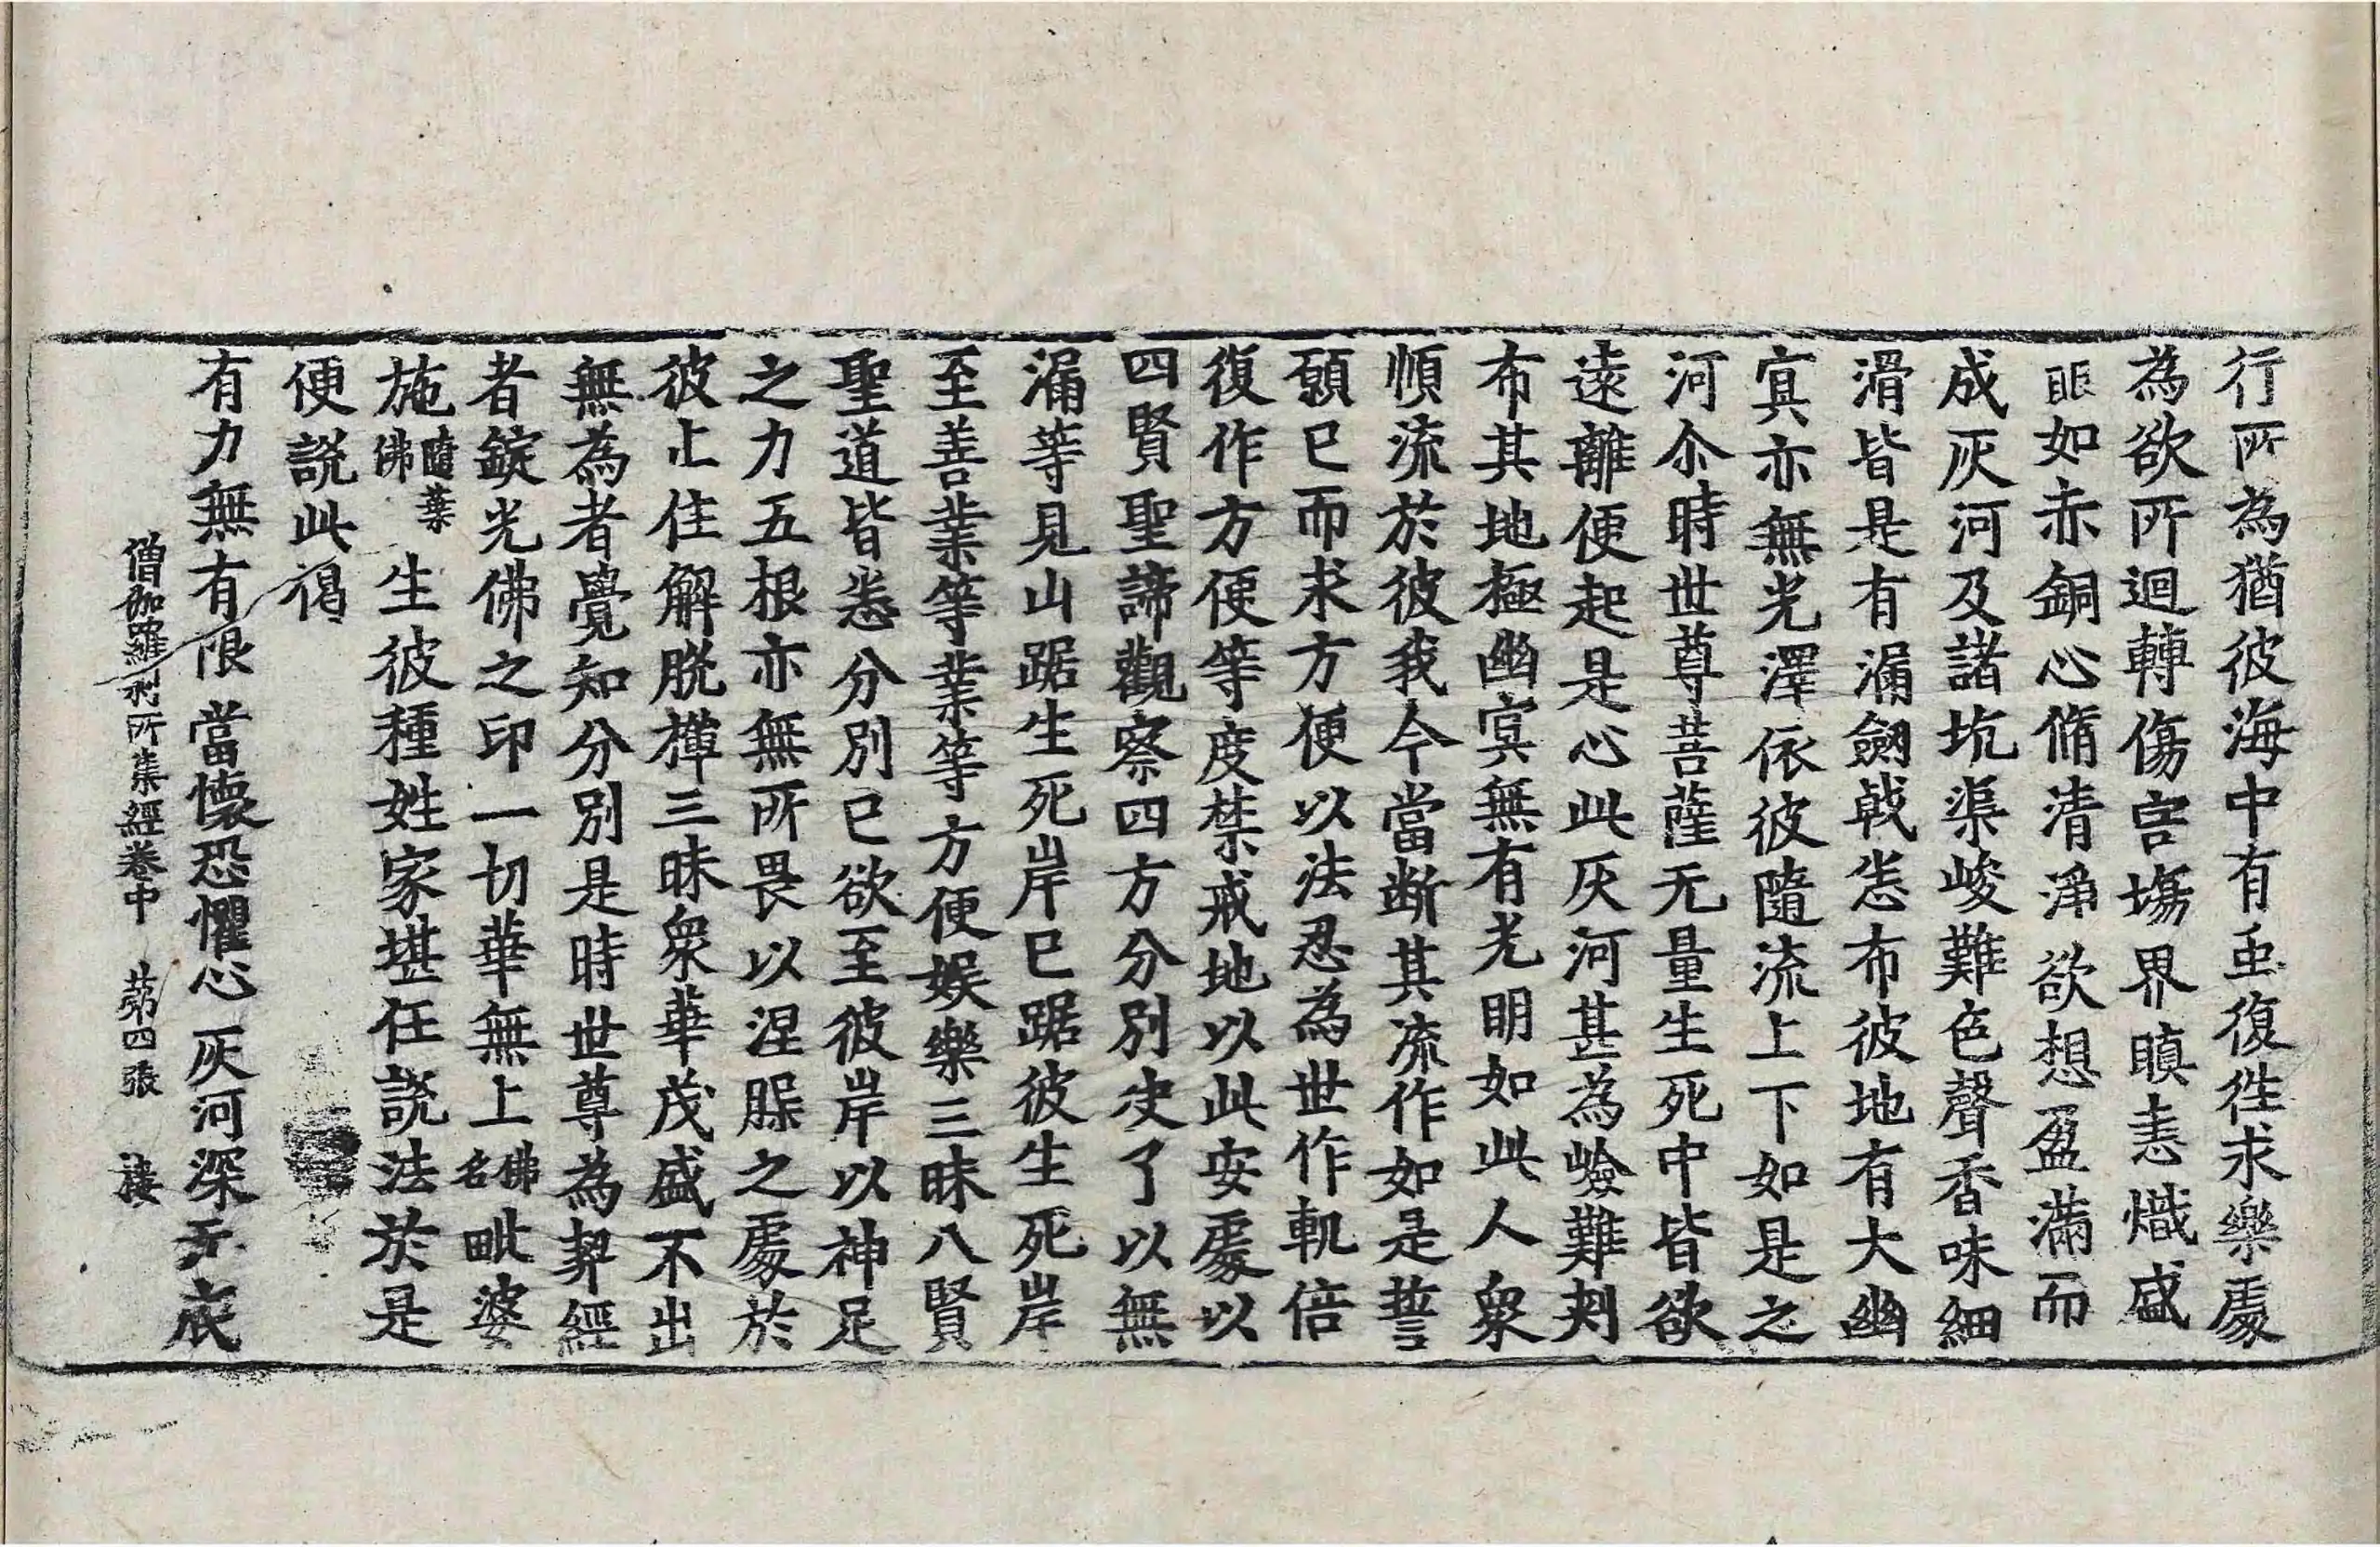 行所為猶彼海中有䖝復往求樂處
為欲所迴轉傷害塲界瞋恚熾盛
眠如赤銅心脩清淨欲想盈滿而
成灰河及諸坑渠峻難色聲香味細
滑皆是有漏劒戟恙布彼地有大幽
㝠亦無光澤依彼隨流上下如是之
河尒時世尊菩薩无量生死中皆欲
遠離便起是心此灰河甚為嶮難刾
布其地極幽㝠無有光明如此人衆
順流於彼我今當断其流作如是誓
願已而求方便以法忍為世作軌倍
復作方便等度禁戒地以此安處以
四賢聖諦觀察四方分別决了以無
漏等見山踞生死岸已踞彼生死岸
至善業等業等方便娛樂三昧八賢
聖道皆悉分別已欲至彼岸以神足
之力五根亦無所畏以涅㬷之處於
彼止住解脫禪三昧衆華茂盛不出
無為者覺知分別是時世尊為契經
者錠光佛之印一切華無上佛名毗婆
施隨葉佛生彼種姓家堪任說法於是
便說此偈
有力無有限 當懷恐懼心 灰河深无底
僧伽羅刹所集經卷中 苐四張